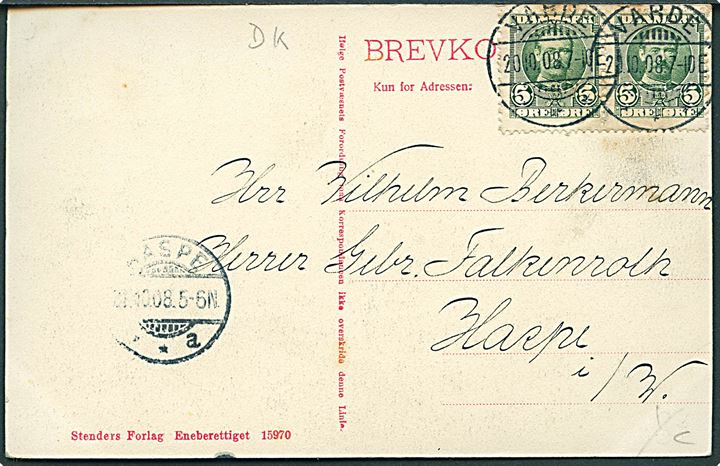 DK
BREVKO
Kun for Adressen:
DANMARK DANMARK
5 5 5 5
ØRE ØRE
VARDE VARDE
20.10.08.7-10E 20.10.08.7-10E
Ifølge Postvæsnets Forordning Korrespondancen ikke overskride denne Linie.
Herr Wilhelm Berkermann
Herrer Gebr. Falkenroth
Haspe
i/W.
HASPE
21.10.08.5-6N.
* * a
Stenders Forlag Eneberettiget 15970